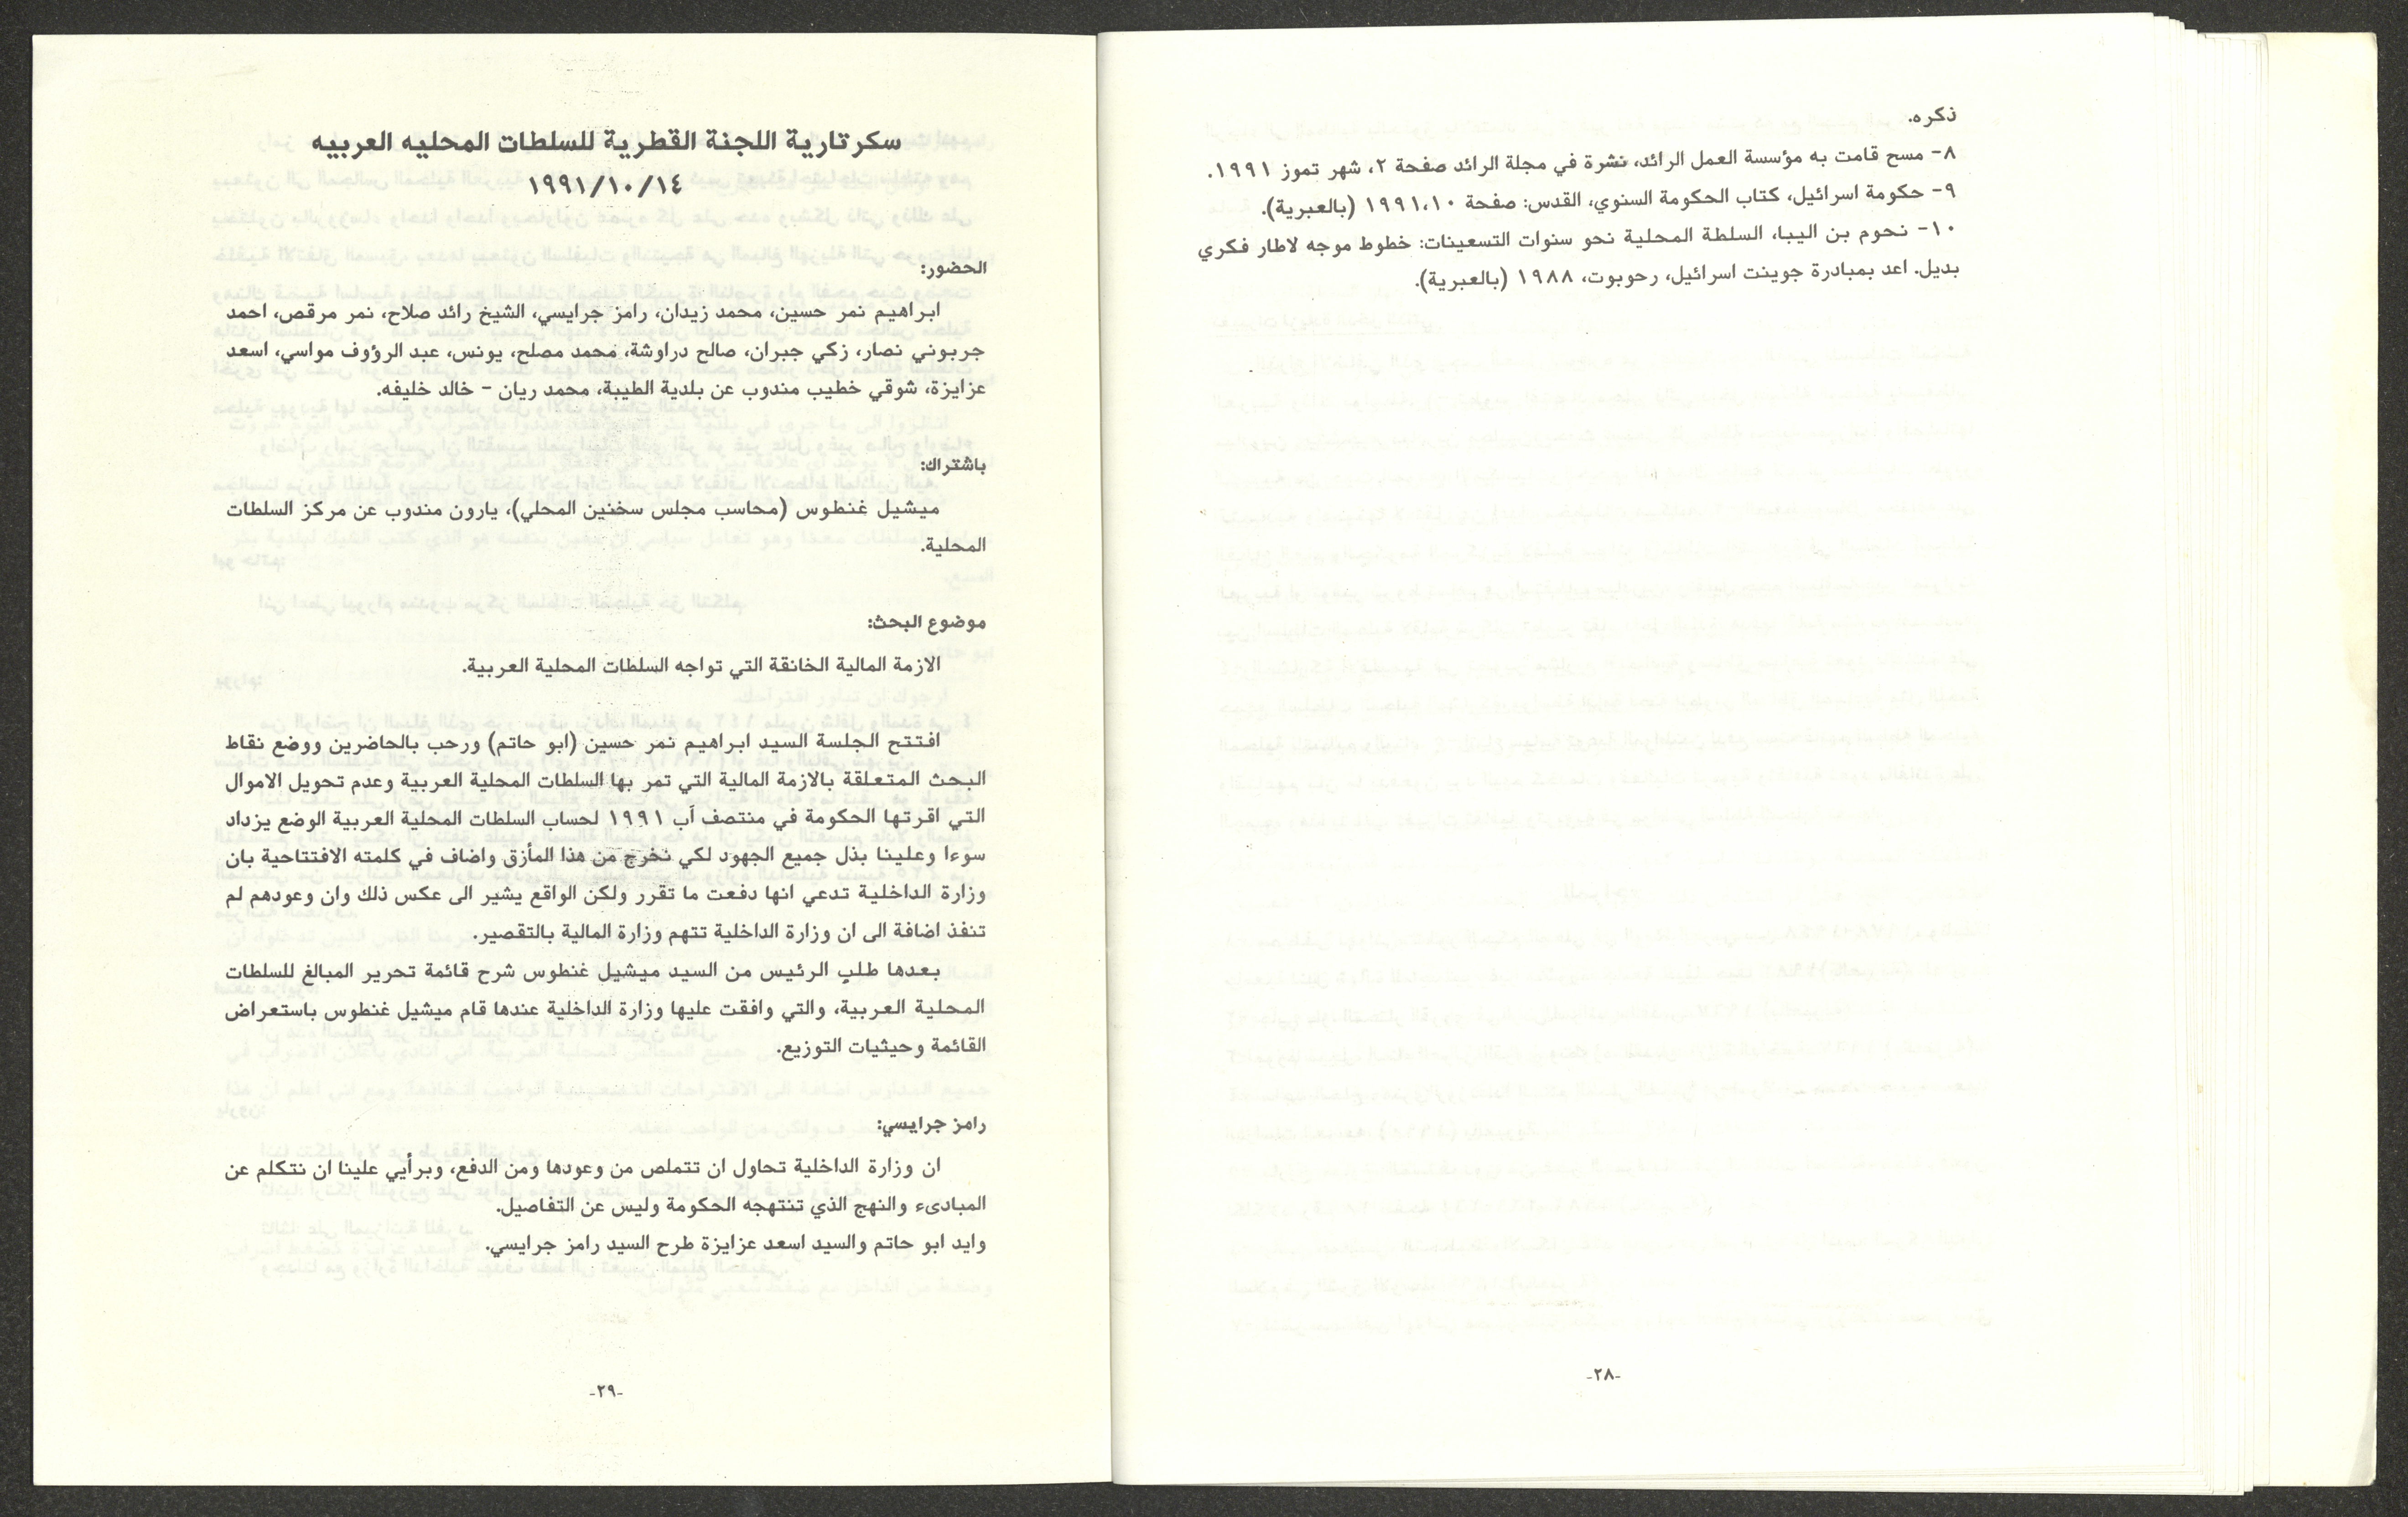 ذكره.
٨- مسح قامت به مؤسسة العمل الرائد، نشرة في مجلة الرائد صفحة ٢، شهر تموز ١٩٩١.
٩- حكومة اسرائيل، كتاب الحكومة السنوي، القدس: صفحة ١٩٩١،١٠ (بالعبرية).
١٠- نحوم بن اليبا، السلطة المحلية نحو سنوات التسعينات: خطوط موجه لاطار فكري
بديل. اعد بمبادرة جوينت اسرائيل، رحوبوت، ١٩٨٨ (بالعبرية).
-٢٨-
سكرتارية اللجنة القطرية للسلطات المحليه العربيه
١٩٩١/١٠/١٤
الحضور:
ابراهيم نمر حسين، محمد زيدان، رامز جرايسي، الشيخ رائد صلاح، نمر مرقص، احمد
جربوني نصار، زكي جبران، صالح دراوشة، محمد مصلح، يونس، عبد الرؤوف مواسي، اسعد
عزايزة، شوقي خطيب مندوب عن بلدية الطيبة، محمد ريان - خالد خليفه.
باشتراك:
ميشيل غنطوس (محاسب مجلس سخنين المحلي)، يارون مندوب عن مركز السلطات
المحلية.
موضوع البحث:
الازمة المالية الخانقة التي تواجه السلطات المحلية العربية.
افتتح الجلسة السيد ابراهيم نمر حسين (ابو حاتم) ورحب بالحاضرين ووضع نقاط
البحث المتعلقة بالازمة المالية التي تمر بها السلطات المحلية العربية وعدم تحويل الاموال
التي اقرتها الحكومة في منتصف آب ١٩٩١ لحساب السلطات المحلية العربية الوضع يزداد
سوءا وعلينا بذل جميع الجهود لكي نخرج من هذا المأزق واضاف في كلمته الافتتاحية بان
وزارة الداخلية تدعي انها دفعت ما تقرر ولكن الواقع يشير الى عكس ذلك وان وعودهم لم
تنفذ اضافة الى ان وزارة الداخلية تتهم وزارة المالية بالتقصير.
بعدها طلب الرئيس من السيد ميشيل غنطوس شرح قائمة تحرير المبالغ للسلطات
المحلية العربية، والتي وافقت عليها وزارة الداخلية عندها قام ميشيل غنطوس باستعراض
القائمة وحيثيات التوزيع.
رامز جرايسي:
ان وزارة الداخلية تحاول ان تتملص من وعودها ومن الدفع، وبرأيي علينا ان نتكلم عن
المبادىء والنهج الذي تنتهجه الحكومة وليس عن التفاصيل.
وايد ابو حاتم والسيد اسعد عزايزة طرح السيد رامز جرايسي.
-٢٩-